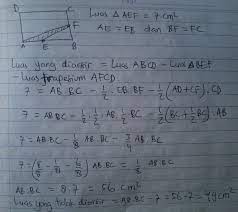 D C
F
A E B
Luas △AEF = 7 cm²
AE = EB dan BF = FC
Luas yang diarsir = Luas ABCD - Luas △BEF
- Luas trapesium AFCD
7 = AB.BC - 1/2.EB.BF - 1/2(AD+CF).CD
7 = AB.BC - 1/2.1/2.AB.1/2.BC - 1/2(BC+1/2BC).AB
7 = AB.BC - 1/8 AB.BC - 3/4 AB.BC
7 = (8/8 - 1/8 - 6/8) AB.BC = 1/8 AB.BC
AB.BC = 8.7 = 56 cm²
Luas yang tidak diarsir = AB.BC - 7 = 56 - 7 = 49 cm²